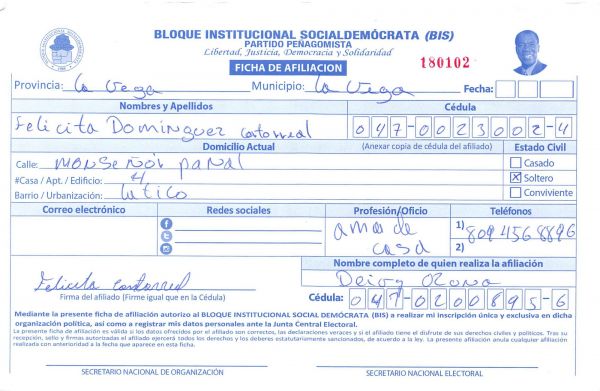 BLOQUE INSTITUCIONAL SOCIALDEMÓCRATA (BIS)
PARTIDO PEÑAGOMISTA
Libertad, Justicia, Democracia y Solidaridad
FICHA DE AFILIACION
180102
Provincia: La Vega Municipio: La Vega Fecha:
Nombres y Apellidos Cédula
Felicita Dominguez Contorreal 047-0023002-4
Domicilio Actual (Anexar copia de cédula del afiliado) Estado Civil
Calle: MONSEÑOR PANAL Casado
#Casa / Apt. / Edificio: 4 X Soltero
Barrio / Urbanización: Conviviente
Correo electrónico Redes sociales Profesión/Oficio Teléfonos
ama de casa
1) 809 456 8896
2)
Nombre completo de quien realiza la afiliación
Felicita Contorreal Deivy
Firma del afiliado (Firme igual que en la Cédula) Cédula: 047-0200895-6
Mediante la presente ficha de afiliación autorizo al BLOQUE INSTITUCIONAL SOCIAL DEMÓCRATA (BIS) a realizar mi inscripción única y exclusiva en dicha
organización política, así como a registrar mis datos personales ante la Junta Central Electoral.
La presente ficha de afiliación es válida si los datos ofrecidos por el afiliado son correctos, las declaraciones veraces y si el afiliado tiene el disfrute de sus derechos civiles y políticos. Tras su
recepción, sello y firmas autorizadas el afiliado ejercerá todos los derechos y los deberes estatutariamente sancionados, de acuerdo a la ley. La presente afiliación anula cualquier afiliación
realizada con anterioridad a la fecha que aparece en esta ficha.
SECRETARIO NACIONAL DE ORGANIZACIÓN SECRETARIO NACIONAL ELECTORAL